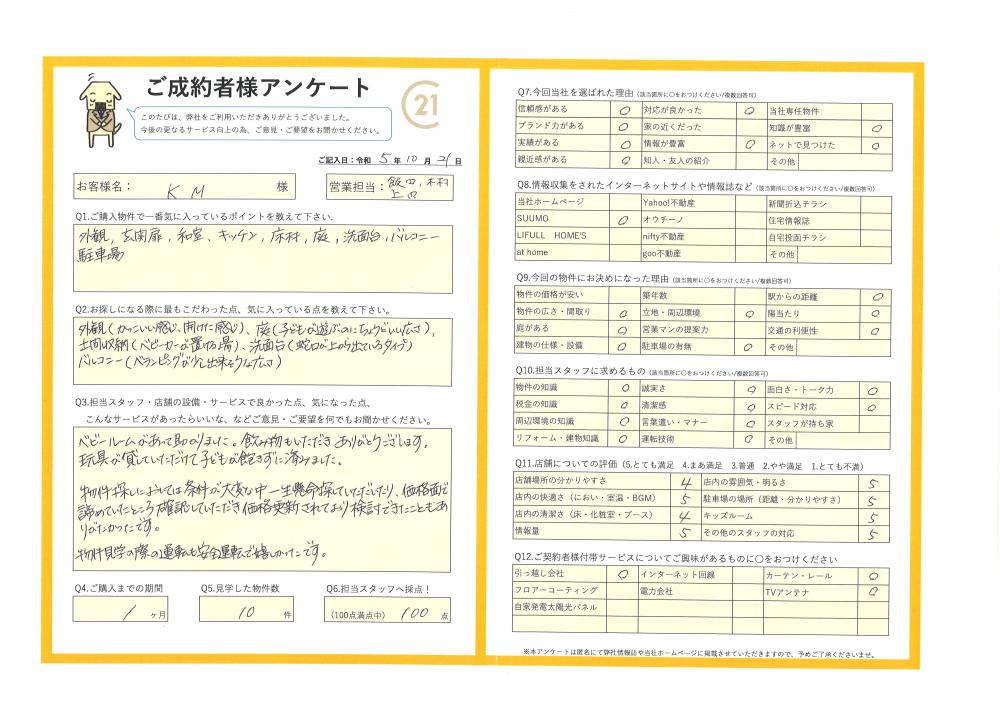 ご成約者様アンケート
21
このたびは、弊社をご利用いただきありがとうございました。
今後の更なるサービス向上の為、ご意見・ご要望をお聞かせください。
ご記入日：令和 5 年 10 月 21 日
お客様名： K M 様
営業担当： 飯田、木村
上田
Q1.ご購入物件で一番気に入っているポイントを教えて下さい。
外観，玄関扉，和室，キッチン，床材，庭，洗面台，バルコニー
駐車場
Q2.お探しになる際に最もこだわった点、気に入っている点を教えて下さい。
外観（かっこいい感じ、開けた感じ）、庭（子どもが遊ぶのにちょうどいい広さ），
土間収納（ベビーカーが置ける場）、洗面台（蛇口が上から出ているタイプ）
バルコニー（ベランピングが少し出来そうな広さ）
Q3.担当スタッフ・店舗の設備・サービスで良かった点、気になった点、
こんなサービスがあったらいいな、などご意見・ご要望を何でもお聞かせください。
ベビールームがあって助かりました。飲み物もいただきありがとうございます。
玩具が貸していただけて子どもが飽きずに済みました。
物件探しにおいては条件が大変な中一生懸命探していただいたり、価格面で
諦めていたところ確認していただき価格更新されており検討できたこともあ
りがたかったです。
物件見学の際の運転も安全運転で嬉しかったです。
Q4.ご購入までの期間
1 ヶ月
Q5.見学した物件数
10 件
Q6.担当スタッフへ採点！
（100点満点中） 100 点
Q7.今回当社を選ばれた理由（該当箇所に○をおつけください/複数回答可）
信頼感がある ○ 対応が良かった ○ 当社専任物件
ブランド力がある ○ 家の近くだった 知識が豊富 ○
実績がある ○ 情報が豊富 ○ ネットで見つけた ○
親近感がある ○ 知人・友人の紹介 その他
Q8.情報収集をされたインターネットサイトや情報誌など（該当箇所に○をおつけください/複数回答可）
当社ホームページ Yahoo!不動産 新聞折込チラシ
SUUMO ○ オウチーノ 住宅情報誌
LIFULL HOME'S nifty不動産 自宅投函チラシ
at home goo不動産 その他
Q9.今回の物件にお決めになった理由（該当箇所に○をおつけください/複数回答可）
物件の価格が安い 築年数 駅からの距離 ○
物件の広さ・間取り ○ 立地・周辺環境 ○ 陽当たり ○
庭がある ○ 営業マンの提案力 交通の利便性 ○
建物の仕様・設備 ○ 駐車場の有無 ○ その他
Q10.担当スタッフに求めるもの（該当箇所に○をおつけください/複数回答可）
物件の知識 ○ 誠実さ ○ 面白さ・トーク力 ○
税金の知識 ○ 清潔感 ○ スピード対応 ○
周辺環境の知識 ○ 言葉遣い・マナー ○ スタッフが持ち家
リフォーム・建物知識 ○ 運転技術 ○ その他
Q11.店舗についての評価（5.とても満足 4.まあ満足 3.普通 2.やや満足 1.とても不満）
店舗場所の分かりやすさ 4 店内の雰囲気・明るさ 5
店内の快適さ（におい・室温・BGM） 5 駐車場の場所（距離・分かりやすさ） 5
店内の清潔さ（床・化粧室・ブース） 4 キッズルーム 5
情報量 5 その他のスタッフの対応 5
Q12.ご契約者様付帯サービスについてご興味があるものに○をおつけください
引っ越し会社 ○ インターネット回線 カーテン・レール ○
フロアーコーティング 電力会社 TVアンテナ ○
自家発電太陽光パネル
※本アンケートは匿名にて弊社情報誌や当社ホームページに掲載させていただきますので、予めご了承くださいませ。